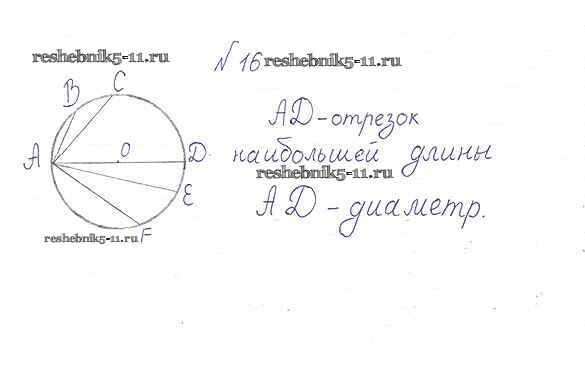 reshebnik5-11.ru
№ 16 reshebnik5-11.ru
B
C
A
O
D
E
F
reshebnik5-11.ru
AD - отрезок
наибольшей длины
reshebnik5-11.ru
AD - диаметр.